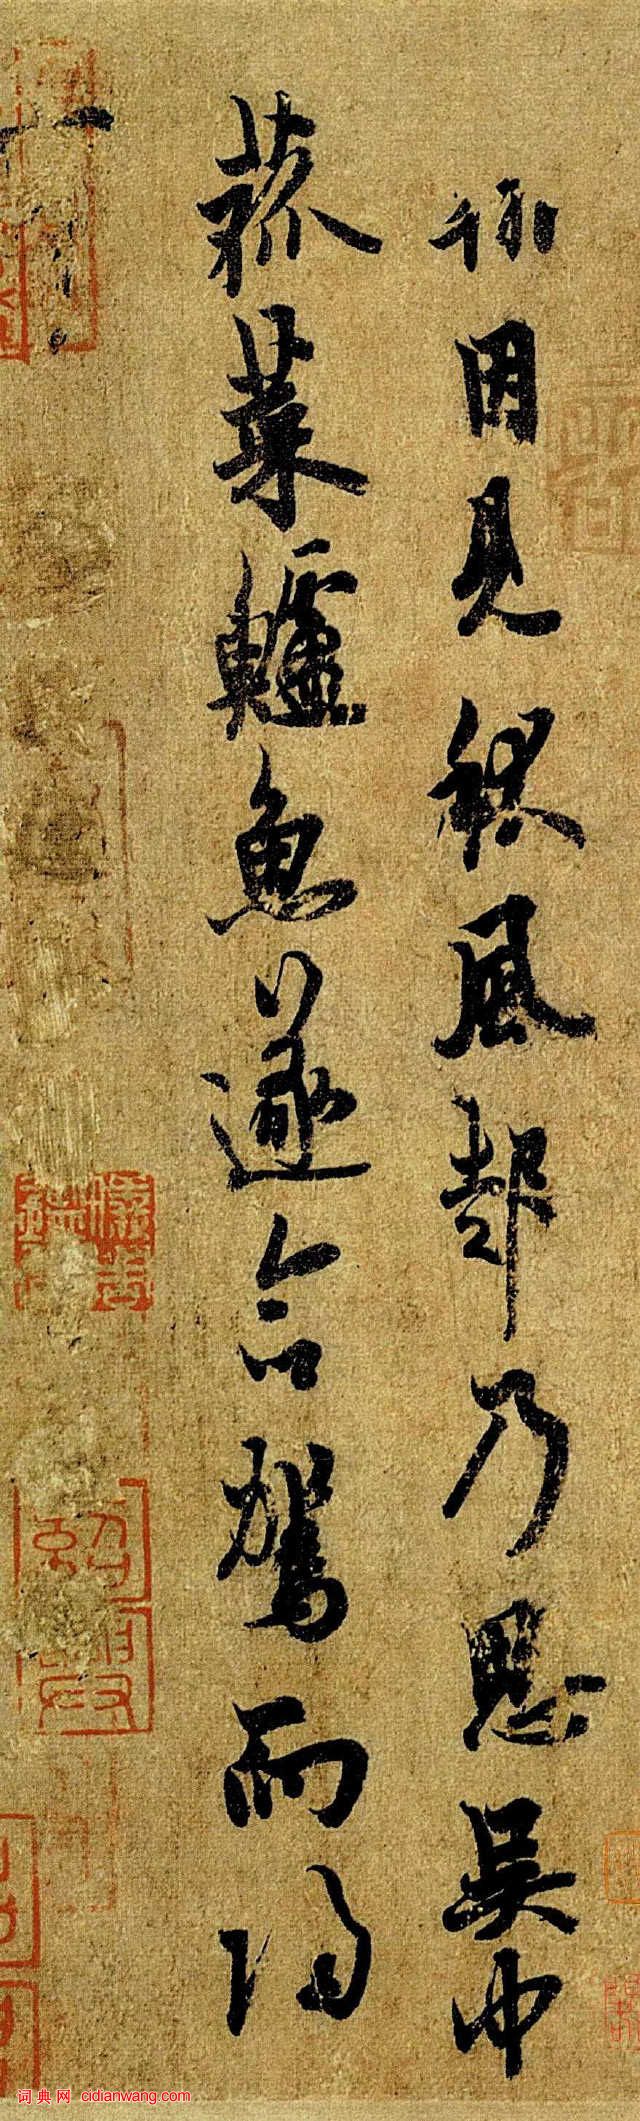 你因見秋風起乃思吳中
菰菜鱸魚遂命駕而歸
詞典网 cidianwang.com